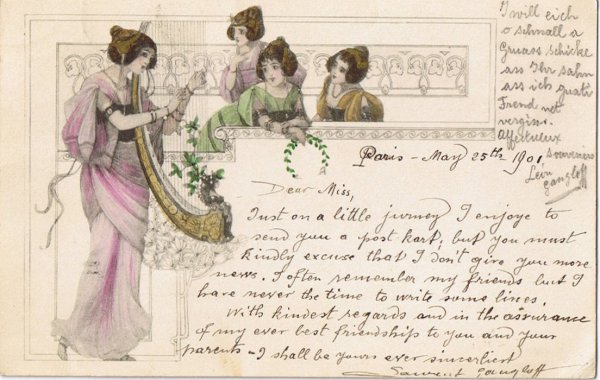 Paris - May 25th 1901
Dear Miss,
Just on a little journey I enjoye to
send you a post kart, but you must
kindly excuse that I don't give you more
news. I often remember my friends but I
have never the time to write some lines.
With kindest regards and in the assurance
of my ever best friendship to you and your
parents - I shall be yours ever sincerliest
Laurent Gangloff
I will eich
o schnall a
Gruass schicke
ass Ihr sahn
ass ich guati
Frend net
vergiss.
Affectulux
souvenirs
Léon
gangloff